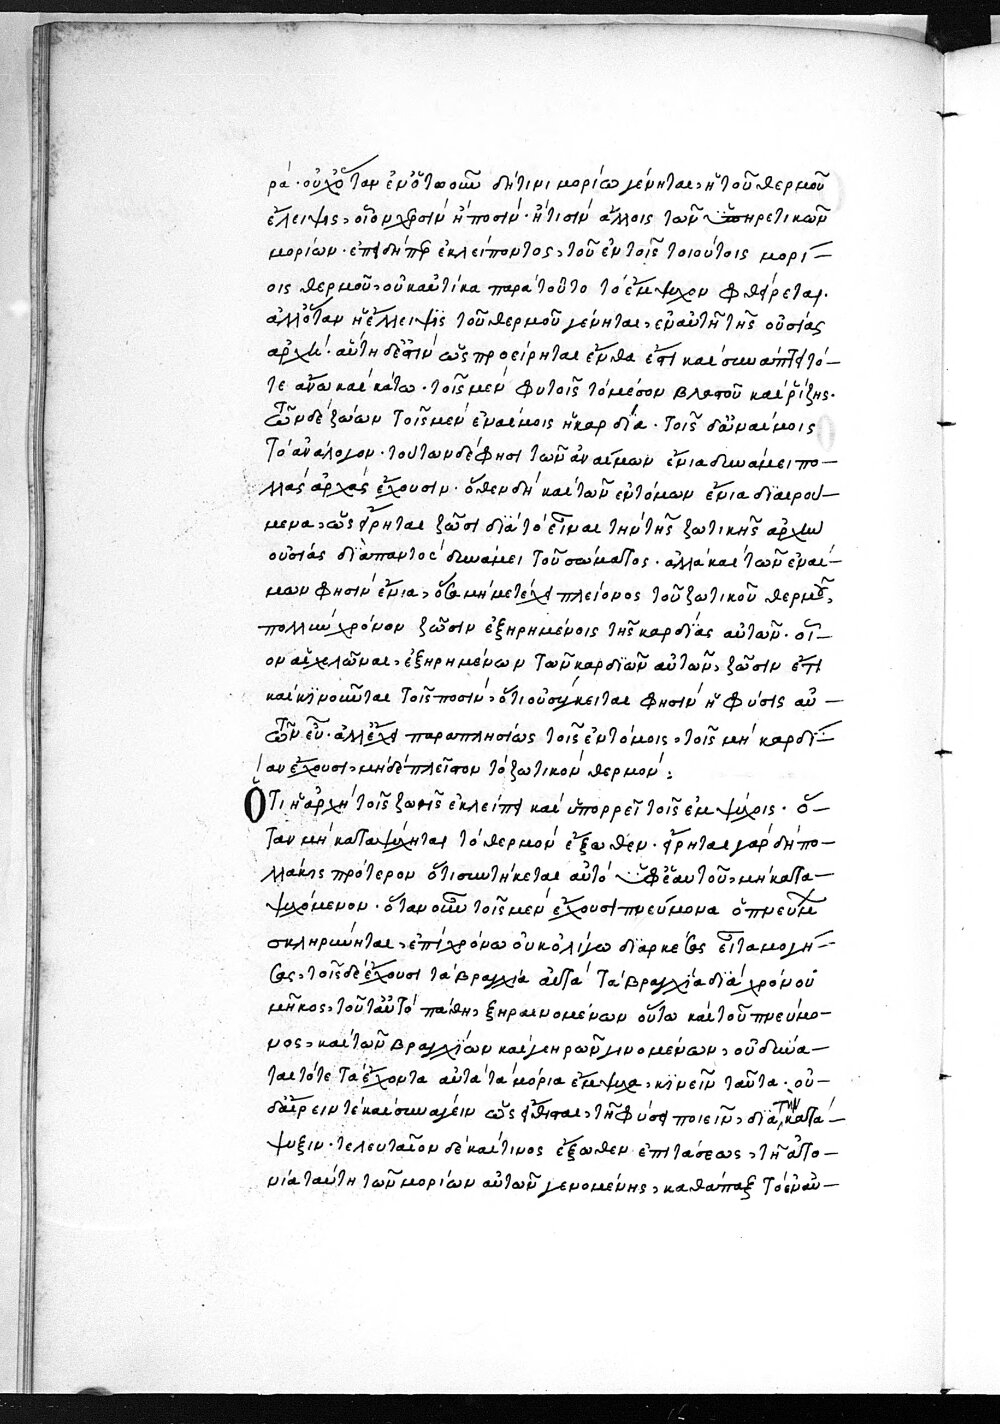 ρά· οὐχ ὅταν ἐν ὁτῳοῦν δήτινι μορίω γένηται, ἡ τοῦ θερμοῦ
ἔλειψις, οἷον χερσὶν ἢ ποσὶν· ἤ τισιν ἄλλοις τῶν ὑπηρετικῶν
μορίων· ἐπεὶ δήπερ ἐκλείποντος, τοῦ ἐν τοῖς τοιούτοις μορί-
οις θερμοῦ, οὐκ αὐτίκα παρὰ τοῦτο τὸ ἔμψυχον φθείρεται.
ἀλλ' ὅταν ἡ ἔλλειψις τοῦ θερμοῦ γένηται, ἐν αὐτῇ τῆς οὐσίας
ἀρχῇ· αὕτη δέ ἐστιν ὡς προείρηται ἔνθα ἐστὶ καὶ συνάπτει τό-
τε ἄνω καὶ κάτω· τοῖς μὲν φυτοῖς τὸ μέσον βλαστοῦ καὶ ῥίζης.
τῶν δὲ ζώων τοῖς μὲν ἐναίμοις ἡ καρδία· τοῖς δ' ἀναίμοις
τὸ ἀνάλογον· τούτων δέ φησι τῶν ἀναίμων ἔνια δυνάμει πο-
λλὰς ἀρχὰς ἔχουσιν· ὅθεν δὴ καὶ τῶν ἐντόμων ἔνια διαιρού-
μενα, ὡς εἴρηται ζῶσι διὰ τὸ εἶναι τὴν τῆς ζωτικῆς ἀρχὴν
οὐσίας διὰ παντὸς δυνάμει τοῦ σώματος· ἀλλὰ καὶ τῶν ἐναί-
μων φησὶν ἔνια, ὅσα μὴ μετέχει πλείονος τοῦ ζωτικοῦ θερμοῦ,
πολλὺν χρόνον ζῶσιν ἐξηρημένοις τῆς καρδίας αὐτῶν· οἷ-
ον αἱ χελῶναι, ἐξηρημένων τῶν καρδιῶν αὐτῶν, ζῶσιν ἔτι
καὶ κινοῦνται τοῖς ποσὶν, ὅτι οὐ σύγκειται φησὶν ἡ φύσις αὐ-
τῶν εὖ· ἀλλ' ἔχει παραπλησίως τοῖς ἐντόμοις, τοῖς μὴ καρδί-
αν ἔχουσι, μηδὲ πλεῖστον τὸ ζωτικὸν θερμόν:
Ὅτι ἡ ἀρχὴ τοῖς ζωοῖς ἐκλείπει καὶ ὑπορρεῖ τοῖς ἐμψύχοις· ὅ-
ταν μὴ καταψύχηται τὸ θερμὸν ἔξωθεν· εἴρηται γὰρ δὴ πο-
λλάκις πρότερον ὅτι συντήκεται αὐτὸ ὑφ' ἑαυτοῦ, μὴ κατα-
ψυχόμενον· ὅταν οὖν τοῖς μὲν ἔχουσι πνεύμονα ὁ πνεύμων
σκληρύνηται, ἐπὶ χρόνω οὐκ ὀλίγω διαρκέσας εἶτα μογή-
σας, τοῖς δὲ ἔχουσι τὰ βραγχία αὐτὰ τὰ βραγχία διὰ χρόνου
μῆκος, τοῦτ' αὐτὸ πάθη, ξηραινομένων οὕτω καὶ τοῦ πνεύμο-
νος, καὶ τῶν βραγχίων καὶ γεηρῶν γινομένων, οὐ δύνα-
ται τότε τὰ ἔχοντα αὐτὰ τὰ μόρια ἔμψυχα, κινεῖν ταῦτα· οὐ-
δ' αἴρειν τὲ καὶ συνάγειν ὡς ἔθισται, τῇ φύσει ποιεῖν, διὰ τὴν κατά-
ψυξιν· τελευταῖον δὲ καί τινος ἔξωθεν ἐπιτάσεως, τῇ ἀτο-
νία ταύτη τῶν μορίων αὐτῶν γενομένης, καθάπαξ τὸ ἐν αὐ-